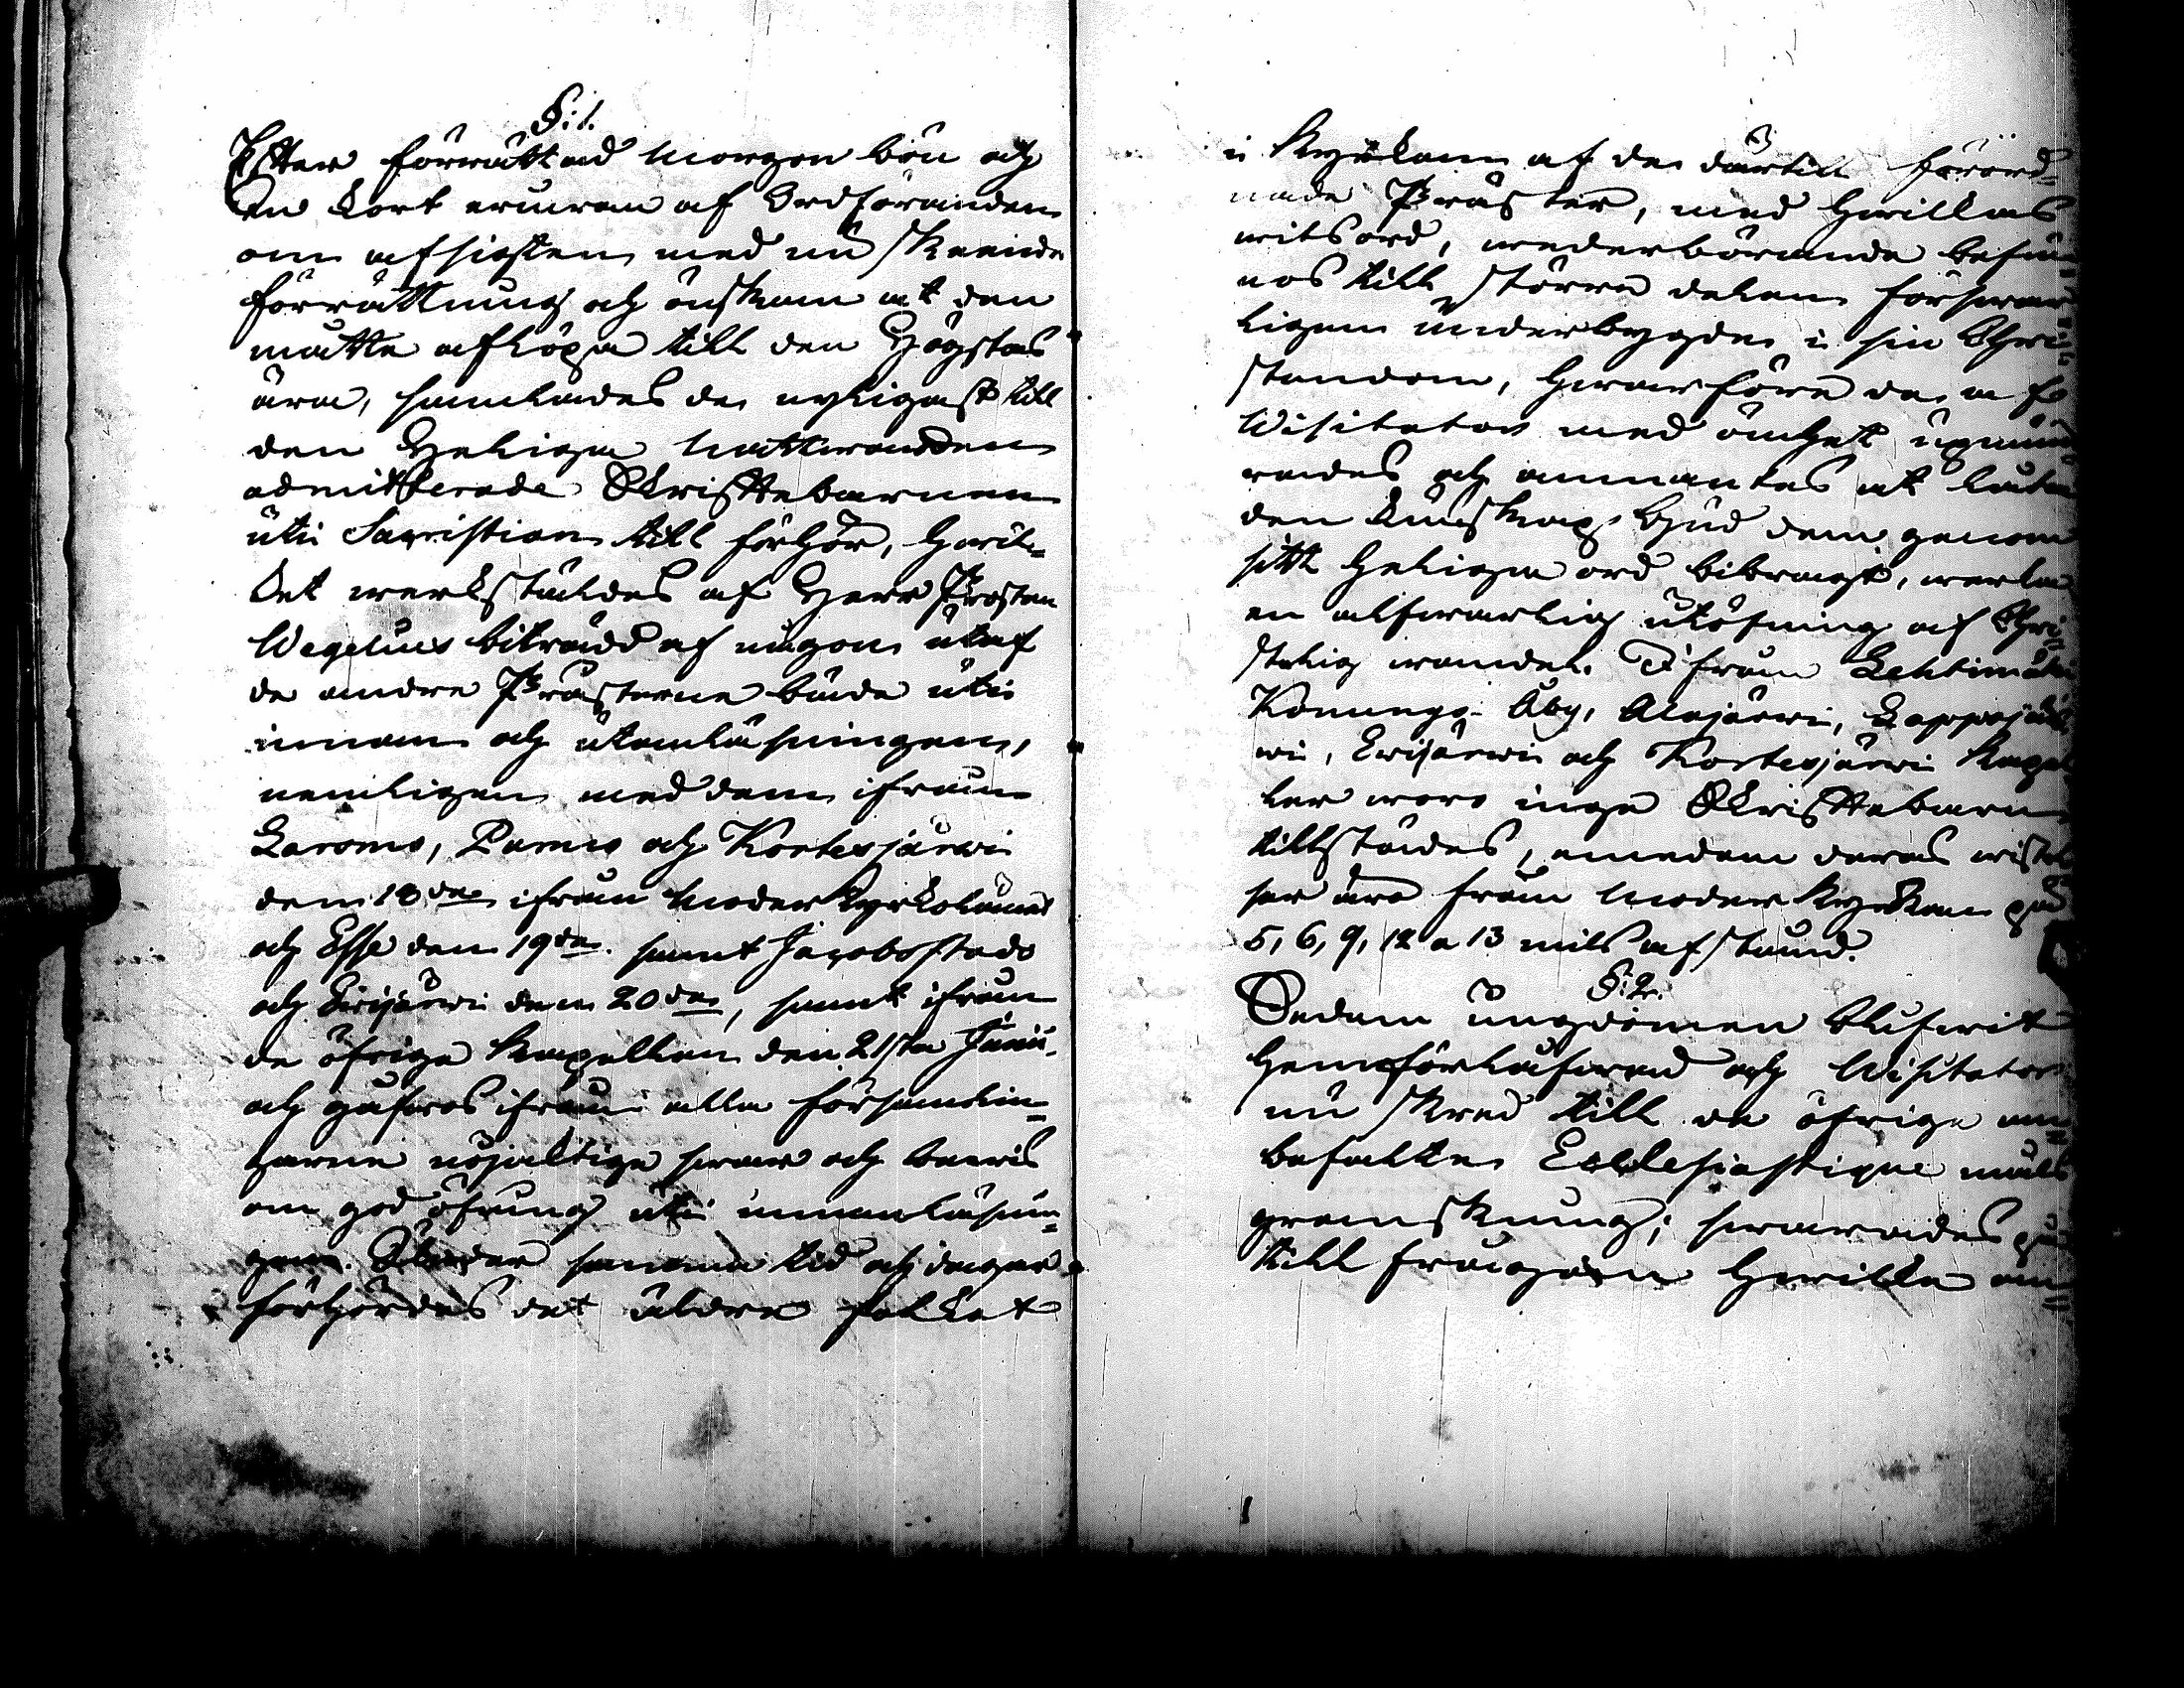 §: 1.
Efter förrättad morgon bön och
en kort erinran af Ordföranden
om afsigten med nu skeende
förrättning och önskan at den
måtte aflöpa till den Högstas
ära, samlades de nyligast till
den Heliga Nattwarden
admitterade Skriftebarnen
uti Sacristian till förhör, hwil=
ket werkstäldes af Herr Prosten
Wegelius biträdd af någon utaf
de andre Prästerne både uti
innan och utanläsningen,
nemligen med dem ifrån
Laromo, Purmo och Kortesjärwi
dem 18de ifrån Moderkyrkolänet
och Esse den 19de samt Jacobstads
och Ewijärwi dem 20de, samt ifrån
de öfrige Kapellen den 21sta Junii,
och gåfwos ifrån alla församlin=
garne nöjaktige swar och bewis
om god öfning uti innanläsnin=
gen. Under samma tid och dagar
förhördes det äldre folket
i Kyrkan af de dertill förord=
nade Präster, med hwillkas
witsord, wederbörande befun
nos till större delen förswar
ligen underbygde i sin Chri
stendom, hwarföre de af
Wisitator med ömhet upmun=
trades och anmantes at låta
den kunskap Gud dem genom
sitt heliga ord bibragt, werka
en alfwarlig utöfning af Chri=
stelig wandel. Ifrån Lehtimäki
Konungs-Åby, Alajärwi, Lappajär
wi, Ewijärwi och Kortesjärwi Kapel
ler woro inga Skriftebarn
tillstädes, emedan deras wistel
ser äro från Moderkyrkan på
5, 6, 9, 12 a 13 mils afstånd.
§: 2.
Sedan ungdomen blifwit
hemförlåfwad och Wisitator
nu skred till de öfrige an=
befalte Ecclesiastique måls
granskning; swarades på
till frågorne hwilka om=